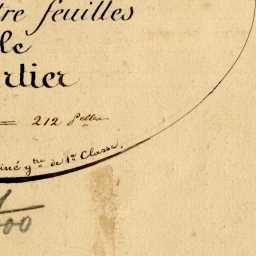 tre feuilles
le
rtier
= 212 Pelles
iné gtre de 1re Classe.
1
00